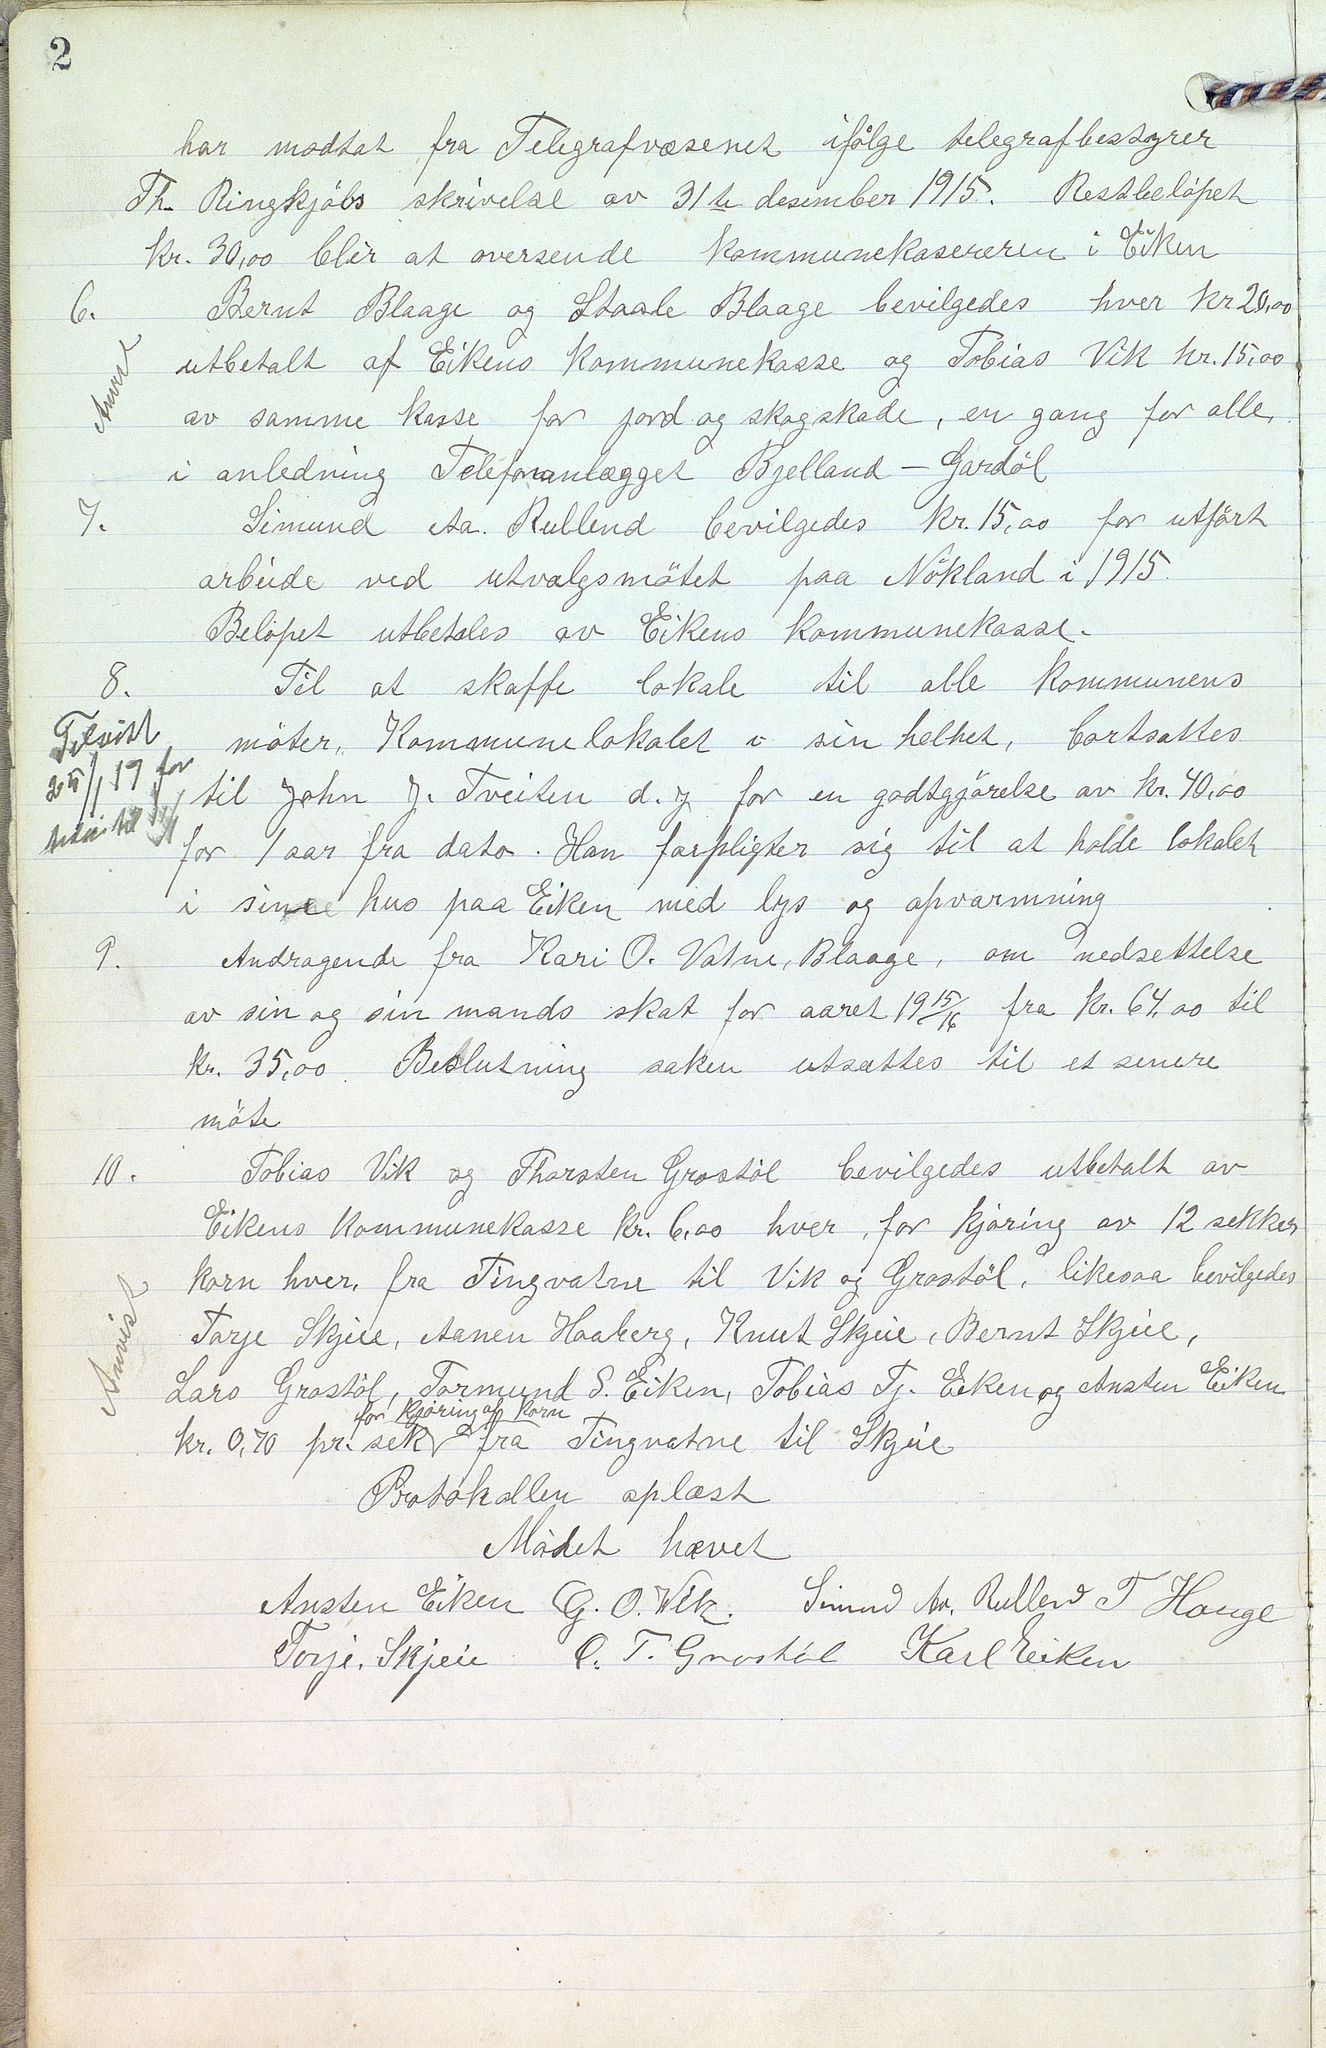 2
har modtat fra Telegrafvæsenet ifölge telegrafbestyrer
Th. Ringkjöbs skrivelse av 31te desember 1915. Restbelöpet
kr. 30,00 blir at oversende kommunekasereren i Eiken
6. Bernt Blaage og Staale Blaage bevilgedes hver kr 20,00
utbetalt af Eikens kommunekasse og Tobias Vik kr. 15,00
av samme kasse for jord og skogskade, en gang for alle,
i anledning Telefonanlægget Bjelland – Gardöl
7. Simund Aa. Rullend bevilgedes kr. 15,00 for utfört
arbeide ved utvalgsmötet paa Nökland i 1915.
Belöpet utbetales av Eikens kommunekasse.
8. Til at skaffe lokale til alle kommunens
möter, Kommunelokalet i sin helhet, bortsattes
til John J. Tveiten d. y for en godtgjörelse av kr. 40,00
for 1 aar fra dato. Han forpligter sig til at holde lokalet
i sine hus paa Eiken med lys og opvarmning
9. Andragende fra Kari O. Vatne, Blaage, om nedsettelse
av sin og sin mands skat for aaret 1915/16 fra kr. 64,00 til
kr. 35,00. Beslutning saken utsættes til et senere
möte
10. Tobias Vik og Thorsten Grostöl bevilgedes utbetalt av
Eikens kommunekasse kr. 6,00 hver, for kjöring av 12 sekker
korn hver, fra Tingvatne til Vik og Grostöl, likesaa bevilgedes
Anvist
Torje Skjeie, Aanen Haaberg, Knut Skjeie, Bernt Skjeie,
Lars Grostöl, Tormund S. Eiken, Tobias Tj. Eiken og Ansten Eiken
for kjöring af korn
kr. 0,70 pr. sek fra Tingvatne til Skjeie
Protokollen oplæst
Mödet hævet
Ansten Eiken G. O. Vik. Simund Aa. Rullend T Hauge
Torje. Skjeie O. T. Grostöl Karl Eiken